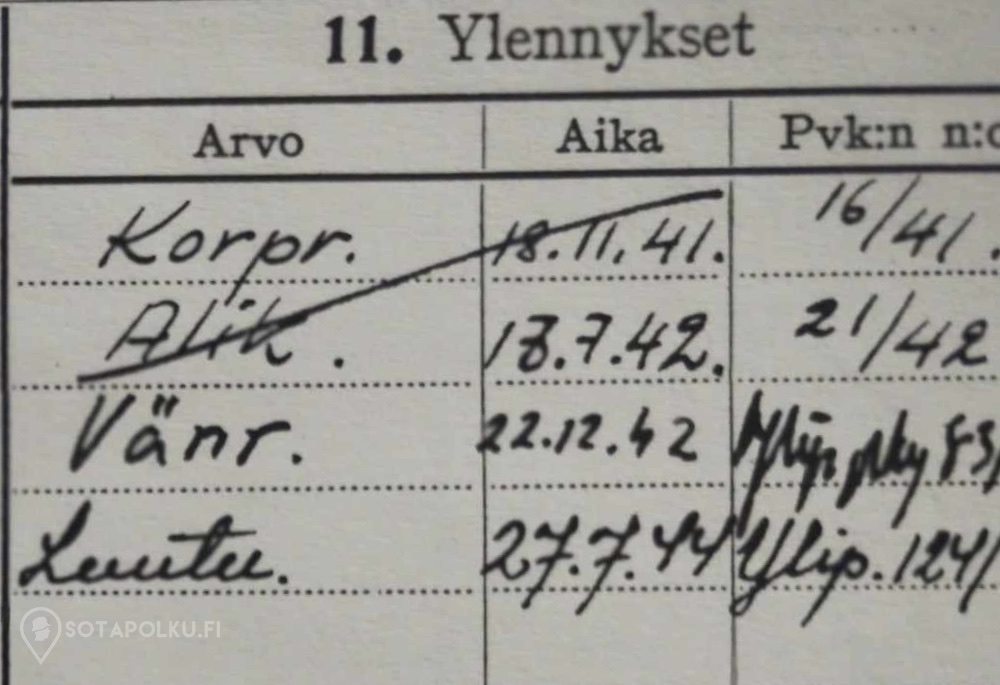 11. Ylennykset
Arvo Aika Pvk:n n:o
Korpr. 18.11.41. 16/41.
Alik. 18.7.42. 21/42
Vänr. 22.12.42 83/
Luutn. 27.7.44 Ylip. 124/
SOTAPOLKU.FI